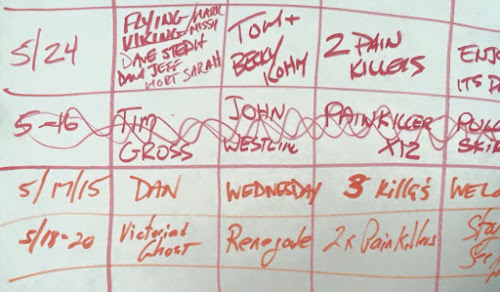 5/24 FLYING MARK VIKING MISSY DAVE STEPH DAN JEFF MORT SARAH TOM + BECKY KOHM 2 PAIN KILLERS ENJO ITS
5-16 Tim GROSS JOHN WESTLIN PAINKILLER X12 SKIN
5/17/15 DAN WEDNESDAY 3 Kille's WEL
5/18-20 Victorian Ghost Renegade 2x PainKillers Stay